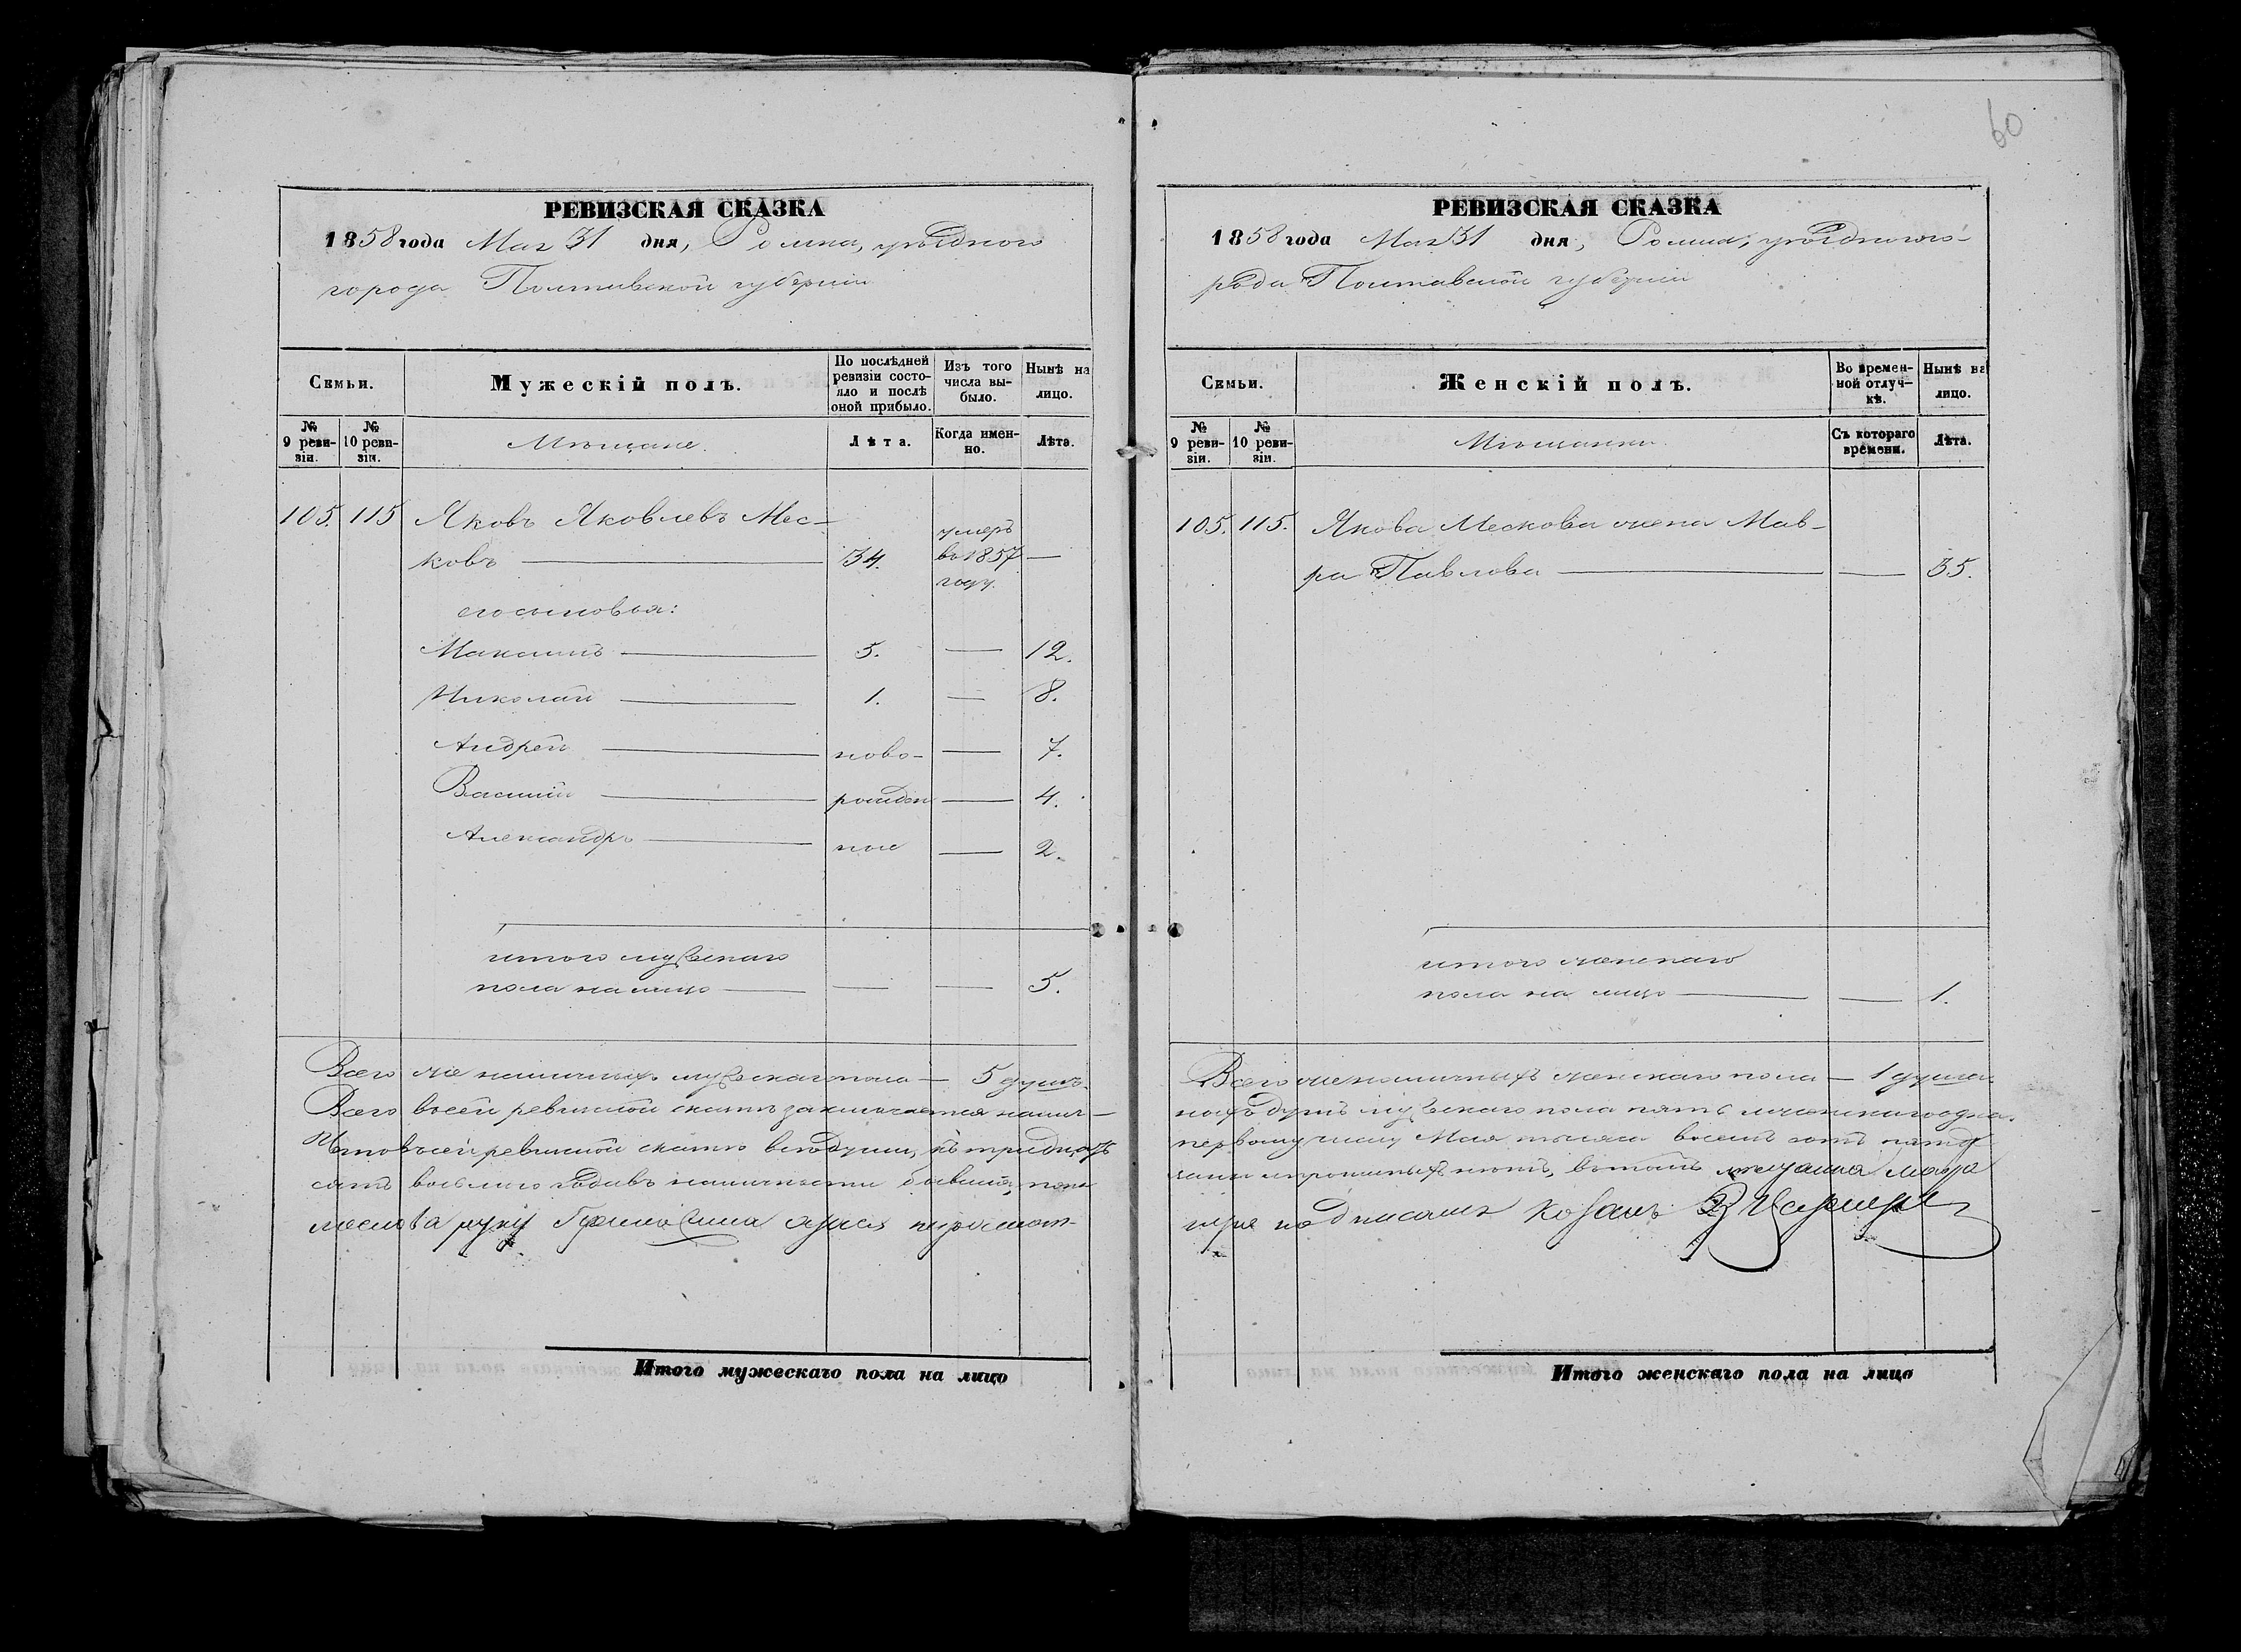 60
РЕВИЗСКАЯ СКАЗКА
1858 года Мая 31 дня, Ромна, уѣзднаго
города Полтавской губерніи
Семьи.
Мужескій полъ.
По послѣдней ревизіи состояло и послѣ оной прибыло.
Изъ того числа выбыло.
Нынѣ на лицо.
№ 9 ревизіи.
№ 10 ревизіи.
Мѣщане.
Лѣта.
Когда именно.
Лѣта.
105. 115 Яковъ Яковлевъ Мес-
ковъ 34. умеръ во 1857 году.
его сыновья:
Максимъ 5. 12.
Николай 1. 8.
Андрей ново- 7.
Василій рожден 4.
Александръ ные 2.
итого мужескаго
пола на лицо 5.
Всего же наличныхъ мужескаго пола — 5 душъ.
Всего в сей ревизской сказкѣ заключается налич-
Что в сей ревизской сказкѣ все души, къ тридцать
сятъ восьмого года въ наличности бывшія, пока
Мескова руку
Итого мужескаго пола на лицо
РЕВИЗСКАЯ СКАЗКА
1858 года Мая 31 дня, Ромна, уѣзднаго го-
рода Полтавской губерніи
Семьи.
Женскій полъ.
Во временной отлучкѣ.
Нынѣ на лицо.
№ 9 ревизіи.
№ 10 ревизіи.
Мѣщанки.
Съ котораго времени.
Лѣта.
105. 115. Якова Мескова жена Мав-
ра Павлова 35.
итого женскаго
пола на лицо 1.
Всего же наличныхъ женскаго пола — 1 душа.
ныхъ душъ мужескаго пола пять и женскаго одна.
первому числу Мая тысяча восемь сотъ пятьде
заны и прописныхъ нѣтъ, въ томъ
подписалъ
Итого женскаго пола на лицо